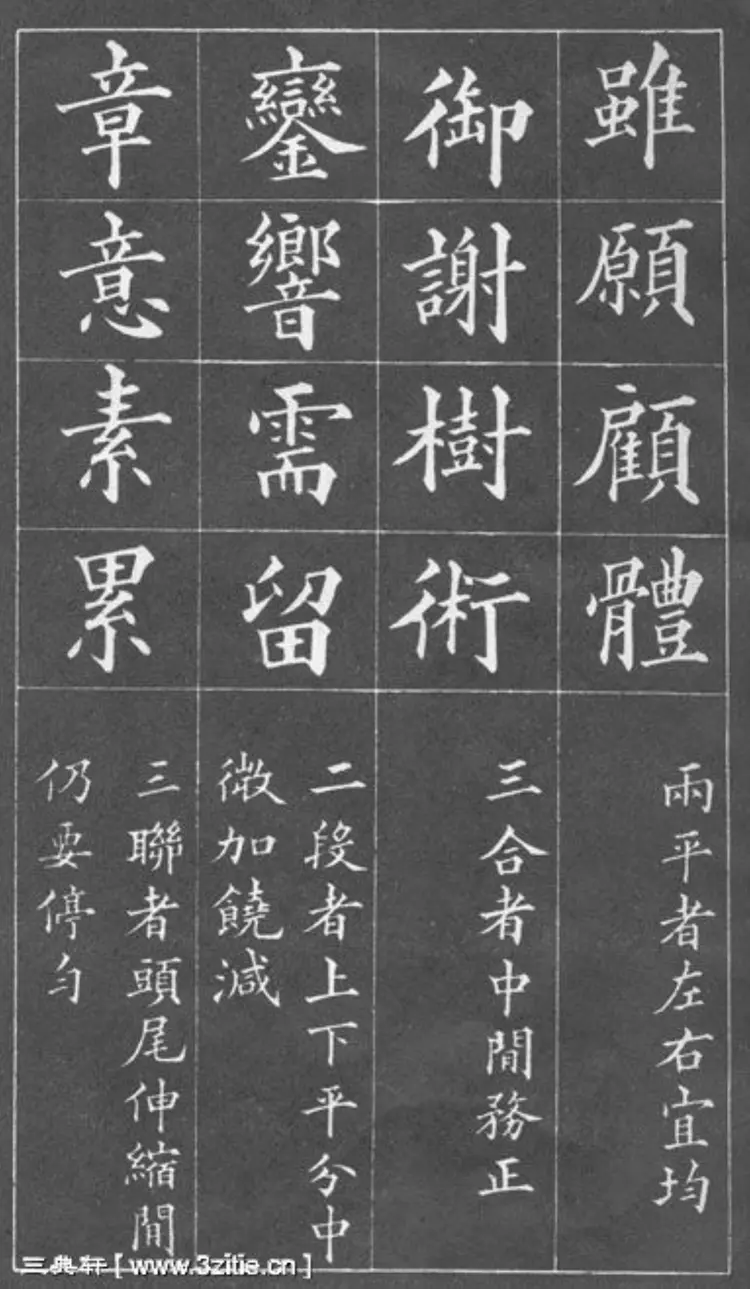 雖願顧體
兩平者左右宜均
御謝樹術
三合者中間務正
鑾響需留
二段者上下平分中
微加饒減
章意素累
三聯者頭尾伸縮間
仍要停勻
三典轩[www.3zitie.cn]